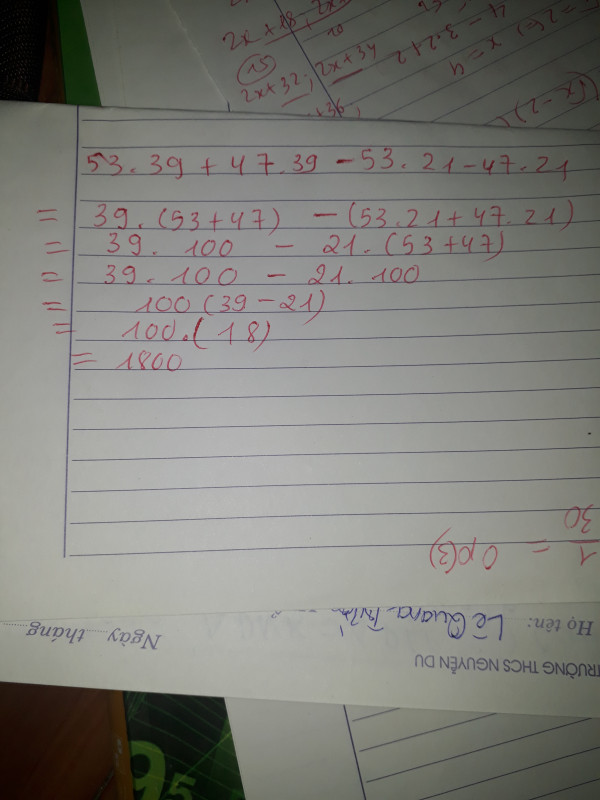 2x+18
15
2x+32; 2x+34
x = 4
53.39 + 47.39 - 53.21 - 47.21
= 39.(53+47) - (53.21 + 47.21)
= 39. 100 - 21. (53+47)
= 39. 100 - 21. 100
= 100 (39-21)
= 100.(18)
= 1800
1/30 = 0p(3)
Họ tên: Lê Quang
Ngày tháng
TRƯỜNG THCS NGUYỄN DU
95